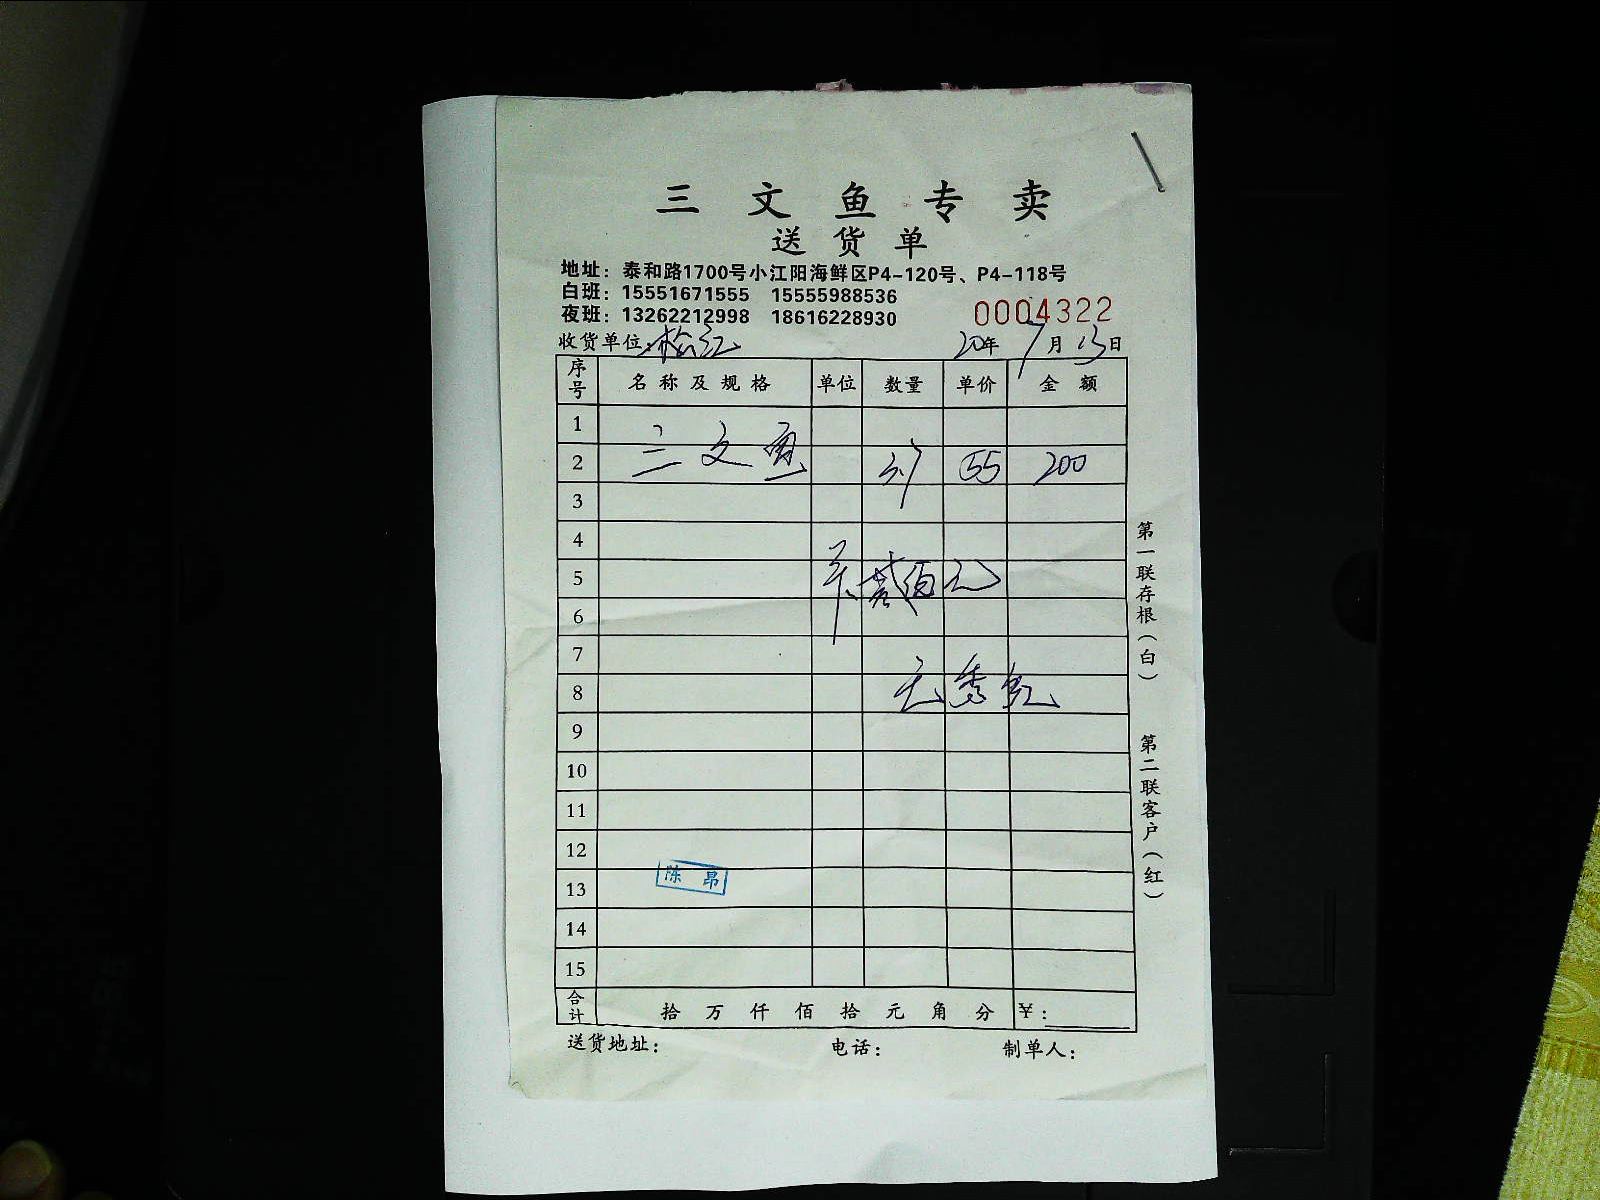 三文鱼专卖
送货单
地址：泰和路1700号小江阳海鲜区P4-120号、P4-118号
白班：15551671555 15555988536
夜班：13262212998 18616228930
0004322
收货单位： 20年7月13日
序号 名称及规格 单位 数量 单价 金额
1
2 三文鱼 3.7 55 200
3
4
5 贰佰元
6
7
8
9
10
11
12
13 陈昂
14
15
合计 拾万仟佰拾元角分 ￥：
送货地址： 电话： 制单人：
第一联存根（白）
第二联客户（红）